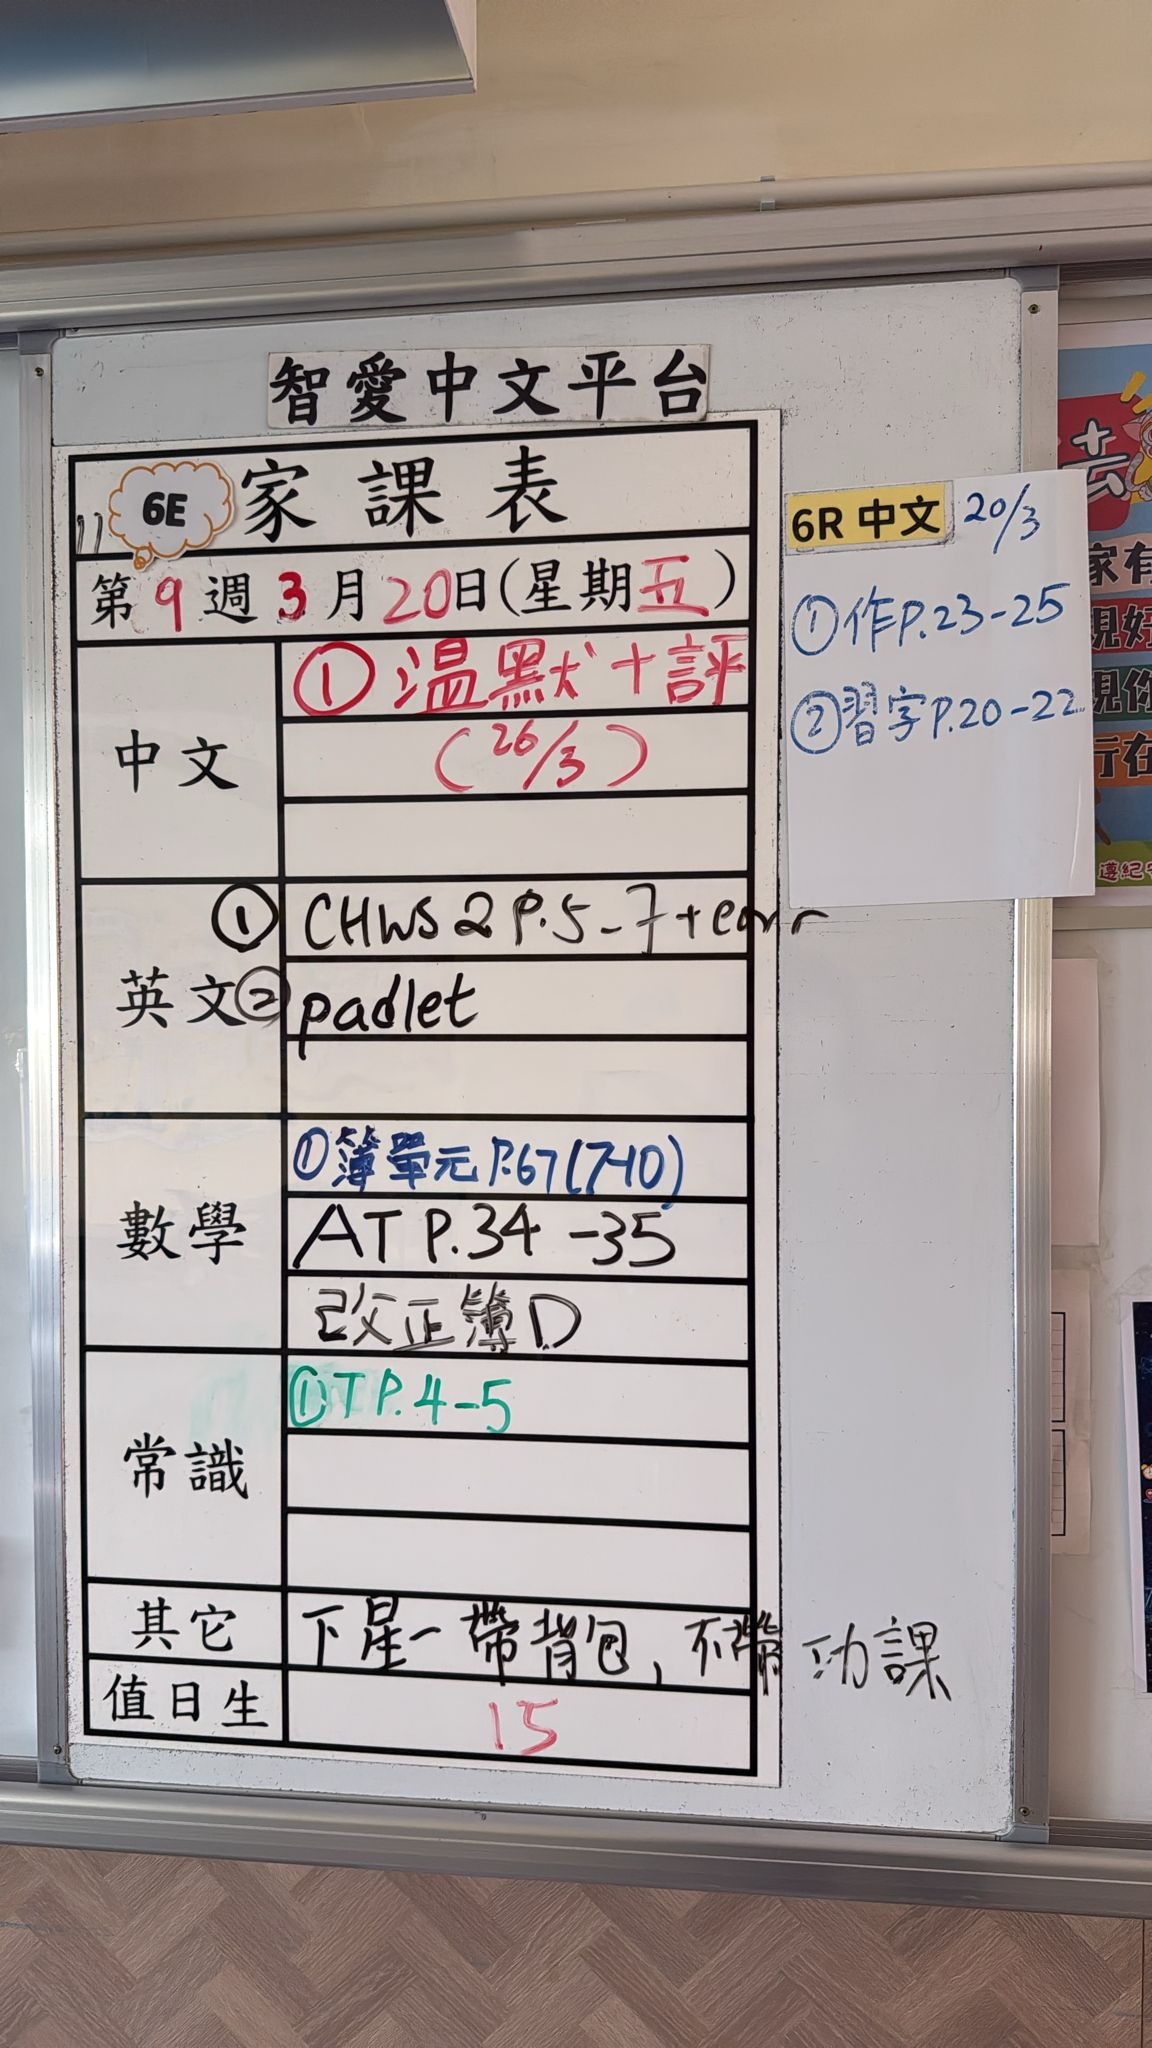 智愛中文平台
6E 家課表
第9週3月20日(星期五)
中文
①溫默+評
(26/3)
英文
① CHWS 2 P.5-7+corr
② padlet
數學
①簿單元P.67(7-10)
AT P.34-35
改正簿D
常識
①T P.4-5
其它
下星一帶背包,不帶功課
值日生
15
6R 中文 20/3
①作P.23-25
②習字P.20-22